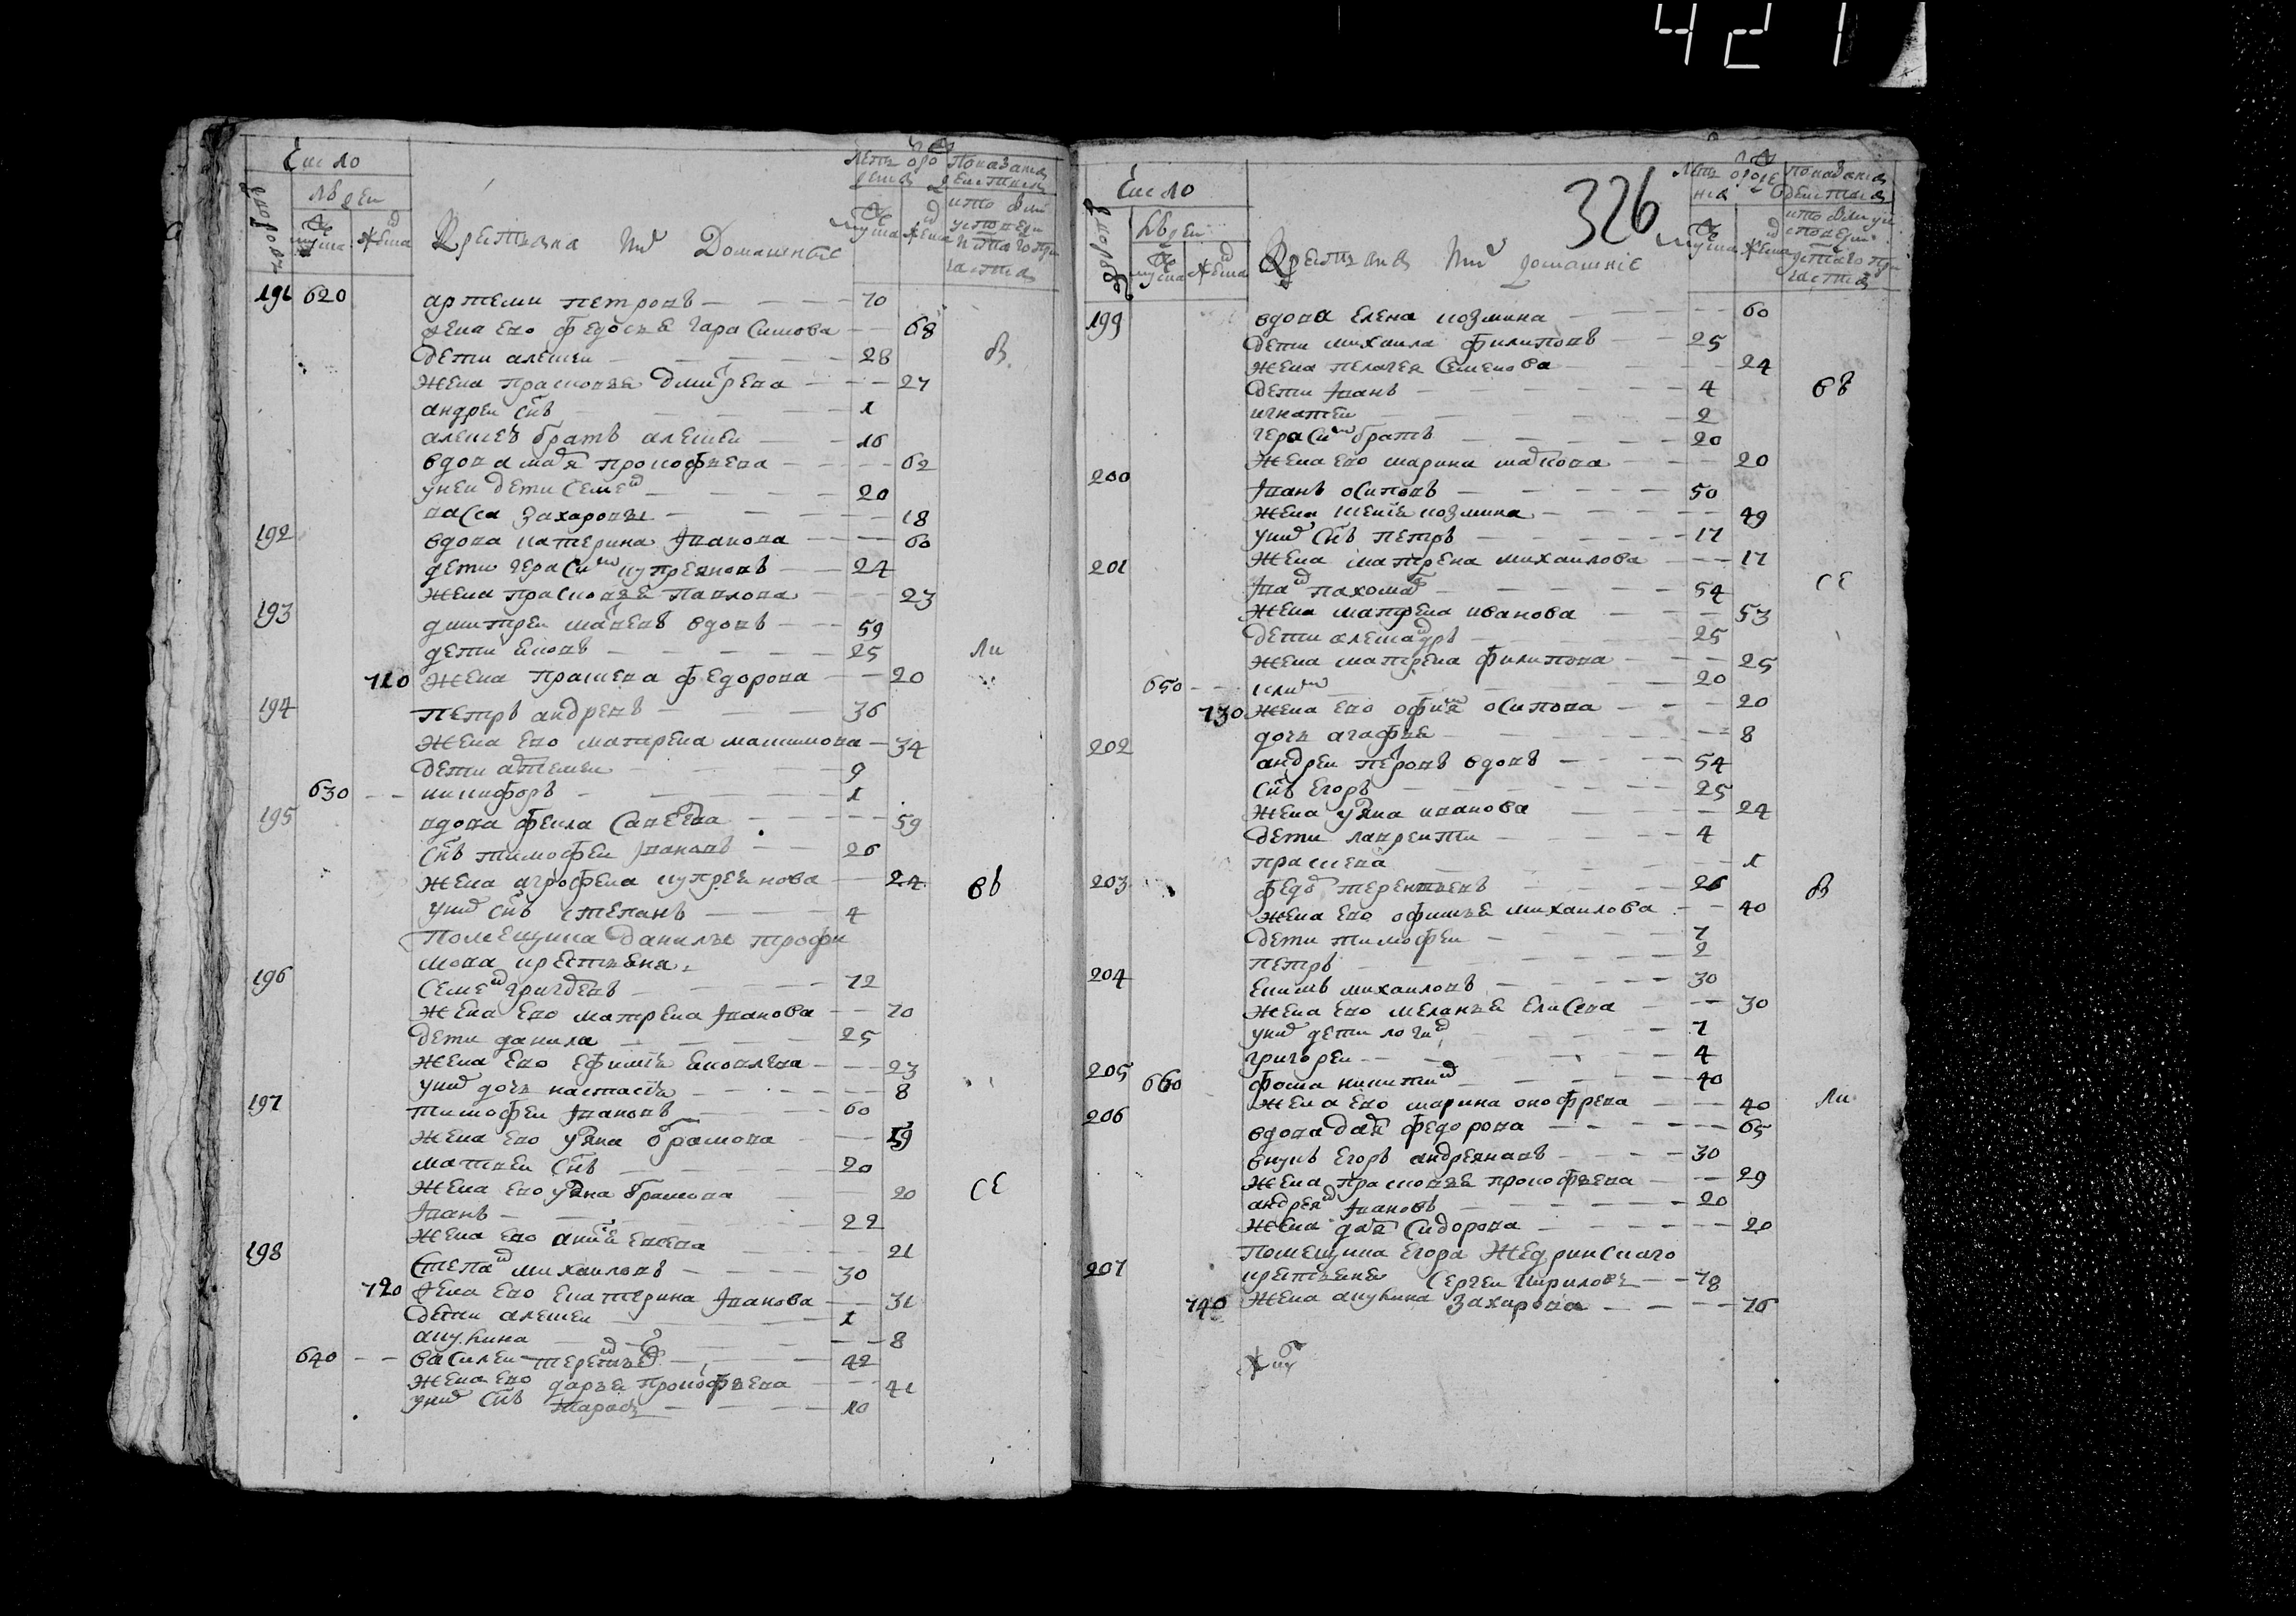 421
Число
дворовъ
людей
мужеска
женска
Крестьяна и ихъ Домашние
лета от рожде
ния
мужеска
женска
Показание
действа
кто был
у исповеди
и святаго при
частия
191 620 артеми петровъ 70
жена ево федосья гарасимова 68
дети алексеи 28 въ.
жена прасковя дмитрева 27
андреи снъ 1
алексею братъ алексеи 16
вдова марья прокофьева 62
у неи дети семенъ 20
васса захаровы 18
192 вдова катерина Iванова 60
дети герасимъ купреяновъ 24
жена прасковья павлова 23
193 дмитреи матвевъ вдовъ 59
дети яковъ 25 ли
710 жена прасковя федорова 20
194 петръ андревъ 36
жена ево матрена максимова 34
дети артемеи 9
630 никифоръ 1
195 вдова фекла савелева 59
снъ тимофеи Iвановъ 26
жена агрофена купреянова 24 въ
у них снъ степанъ 4
Помещика данилы трофи
мова крестьяна
196 семенъ григоревъ 72
жена ево матрена Iванова 70
дети данила 25
жена ево ефимия яковлева 23
у них дочь настасия 8
197 тимофеи Iвановъ 60
жена ево уляна абрамова 59
матвеи снъ 20
жена ево уляна абрамова 20 се
Iванъ 22
жена ево евсева 21
198 степанъ михаиловъ 30
720 жена ево екатерина Iванова 31
дети алексеи 1
акулина 8
640 василеи терентьевъ 42
жена ево дарья прокофьева 41
у них снъ тарасъ 10
326
Число
дворовъ
людеи
мужеска
женска
Крестьяна и ихъ домашние
лета от рожде
ния
мужеска
женска
показания
действа
кто были у
исповеди
и святаго при
частия
199 вдова елена козмина 60
дети михаила филиповъ 25
жена пелагея семенова 24
дети Iванъ 4 въ
игнатеи 2
герасимъ братъ 20
жена ево марина маркова 20
200 Iванъ осиповъ 50
жена козмина 49
у них снъ петръ 17
жена матрена михаилова 17
201 Iванъ пахомовъ 54 се
жена матрена иванова 53
дети александръ 25
жена матрена филипова 25
650 климъ 20
730 жена ево осипова 20
дочь агафья 8
202 андреи петровъ вдовъ 54
снъ егоръ 25
жена уляна иванова 24
дети лаврентеи 4
прасковя 1
203 федоръ терентьевъ 26 въ
жена ево офимья михаилова 40
дети тимофеи 7
петръ 2
204 екимъ михаиловъ 30
жена ево меланья елисева 30
у них дети логинъ 7
григореи 4
205 660 фома никитинъ 40
жена ево марина онофрева 40 ли
206 вдова дарья федорова 65
внукъ егоръ андреяновъ 30
жена прасковья прокофьева 29
андреянъ Iвановъ 20
жена дарья сидорова 20
Помещика егора жедринскаго
207 крестьяне сергеи кириловъ 78
740 жена акулина захарова 76